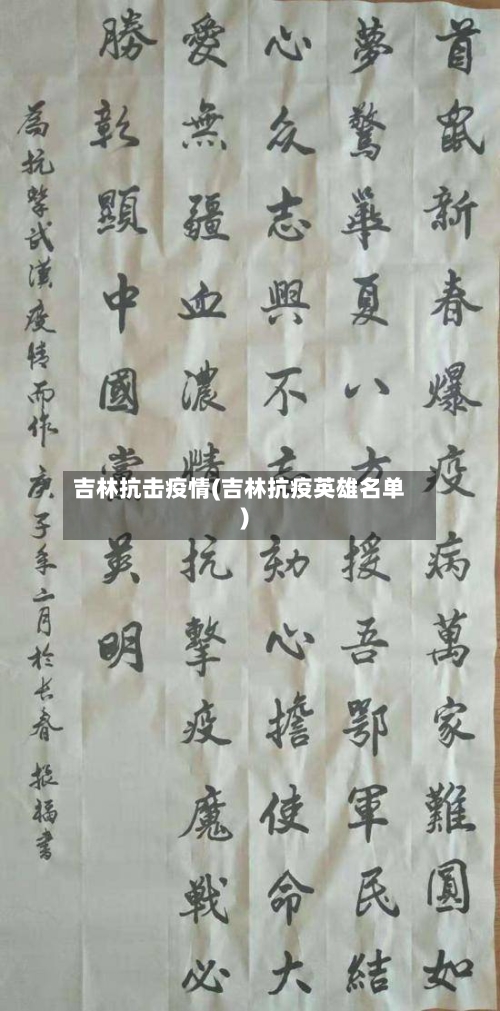 首鼠新春爆疫病萬家難圓如
夢驚華夏八方援吾鄂軍民結
心众志興不忘初心擔使命大
愛無疆血濃情抗擊疫魔戰必
勝彰顯中國黨英明
為抗擊武漢疫情而作 庚子年二月於长春 振福書
吉林抗击疫情(吉林抗疫英雄名单
)